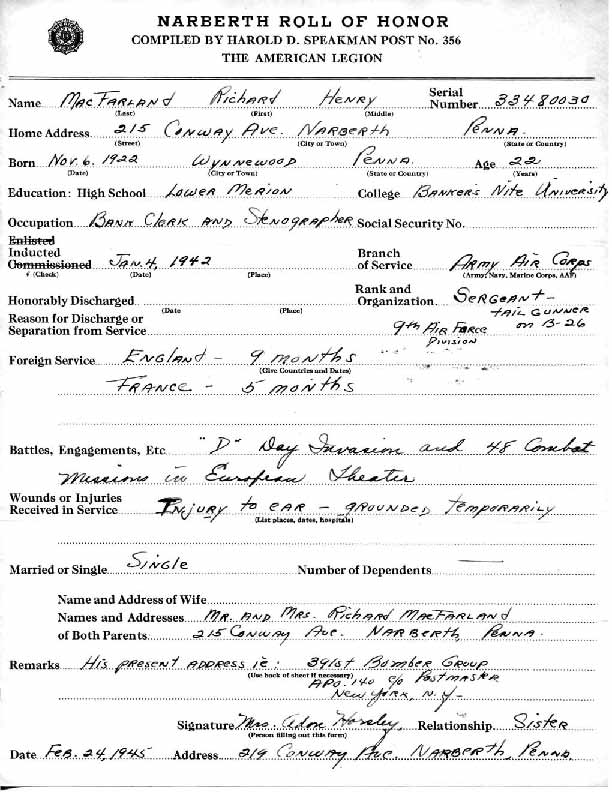 NARBERTH ROLL OF HONOR
COMPILED BY HAROLD D. SPEAKMAN POST No. 356
THE AMERICAN LEGION
Name MacFarland Richard Henry Serial Number 33480030
(Last) (First) (Middle)
Home Address 215 Conway Ave. Narberth Penna.
(Street) (City or Town) (State or Country)
Born Nov. 6, 1922 Wynnewood Penna. Age 22
(Date) (City or Town) (State or Country) (Years)
Education: High School Lower Merion College Bankers Nite University
Occupation Bank Clark and Stenographer Social Security No.
Enlisted
Inducted
Commissioned Jan. 4, 1942 Branch of Service Army Air Corps
(Check) (Date) (Place) (Army, Navy, Marine Corps, AAF)
Honorably Discharged Rank and Organization Sergeant -
(Date (Place) tail gunner
Reason for Discharge or
Separation from Service 9th Air Force on B-26
Division
Foreign Service England - 9 months
(Give Countries and Dates)
France - 5 months
Battles, Engagements, Etc. "D" Day Invasion and 48 Combat
Missions in European Theater
Wounds or Injuries
Received in Service Injury to ear - grounded temporarily
(List places, dates, hospitals)
Married or Single Single Number of Dependents
Name and Address of Wife
Names and Addresses Mr. and Mrs. Richard MacFarland
of Both Parents 215 Conway Ave. Narberth, Penna.
Remarks His present address is: 391st Bomber Group
(Use back of sheet if necessary)
APO. 140 c/o Postmaster
New York, N.Y.
Signature Mrs. Horsley, Relationship Sister
(Person filling out this form)
Date Feb. 24, 1945 Address 219 Conway Ave. Narberth, Penna.